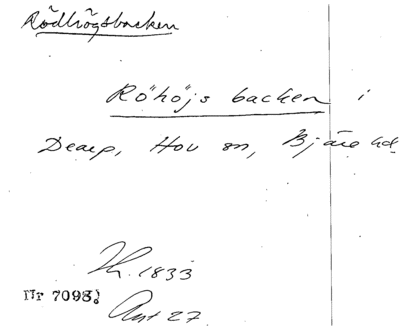 Rödhögsbacken
Röhöjs backen i
Dearp, Hov sn, Bjäre hd
Th. 1833
Nr 7098:
Ant 27